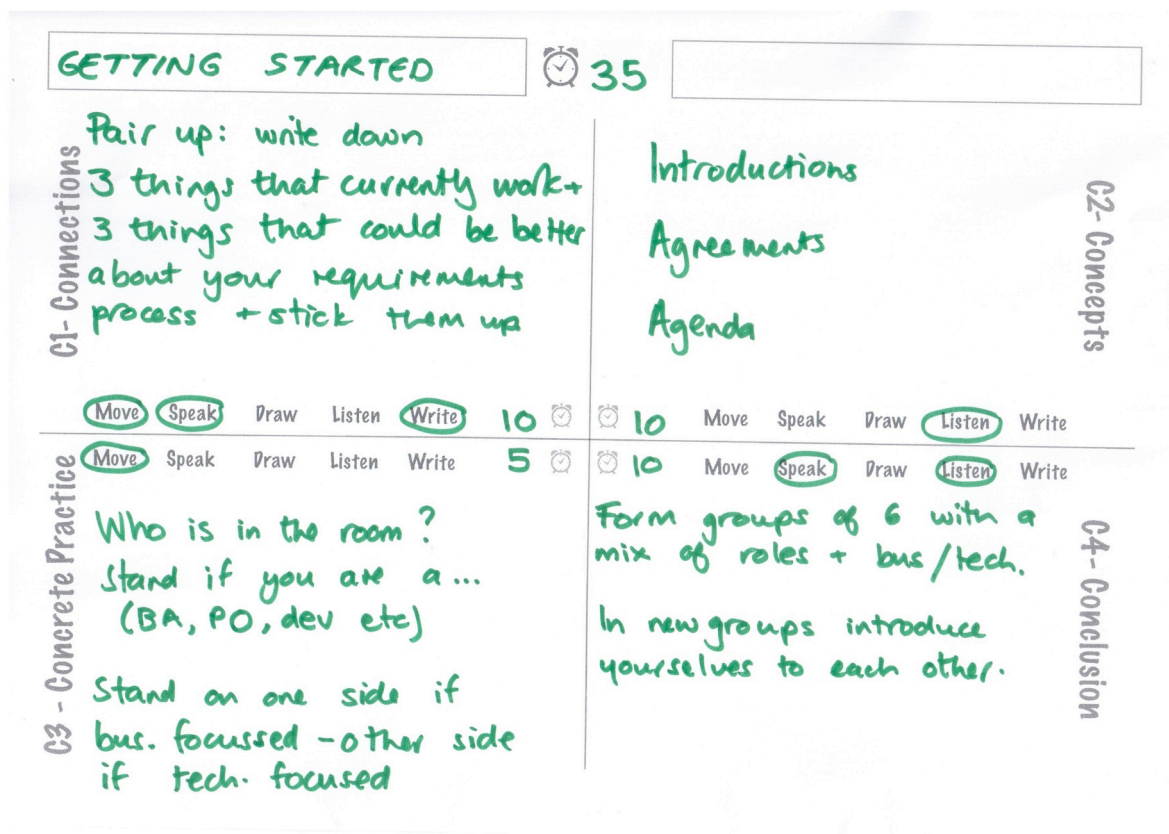 GETTING STARTED
35
C1- Connections
Pair up: write down
3 things that currently work +
3 things that could be better
about your requirements
process + stick them up
Move Speak Draw Listen Write 10
C2- Concepts
Introductions
Agreements
Agenda
10 Move Speak Draw Listen Write
C3 - Concrete Practice
Move Speak Draw Listen Write 5
Who is in the room?
Stand if you are a...
(BA, PO, dev etc)
Stand on one side if
bus. focussed - other side
if tech. focused
C4- Conclusion
10 Move Speak Draw Listen Write
Form groups of 6 with a
mix of roles + bus/tech.
In new groups introduce
yourselves to each other.